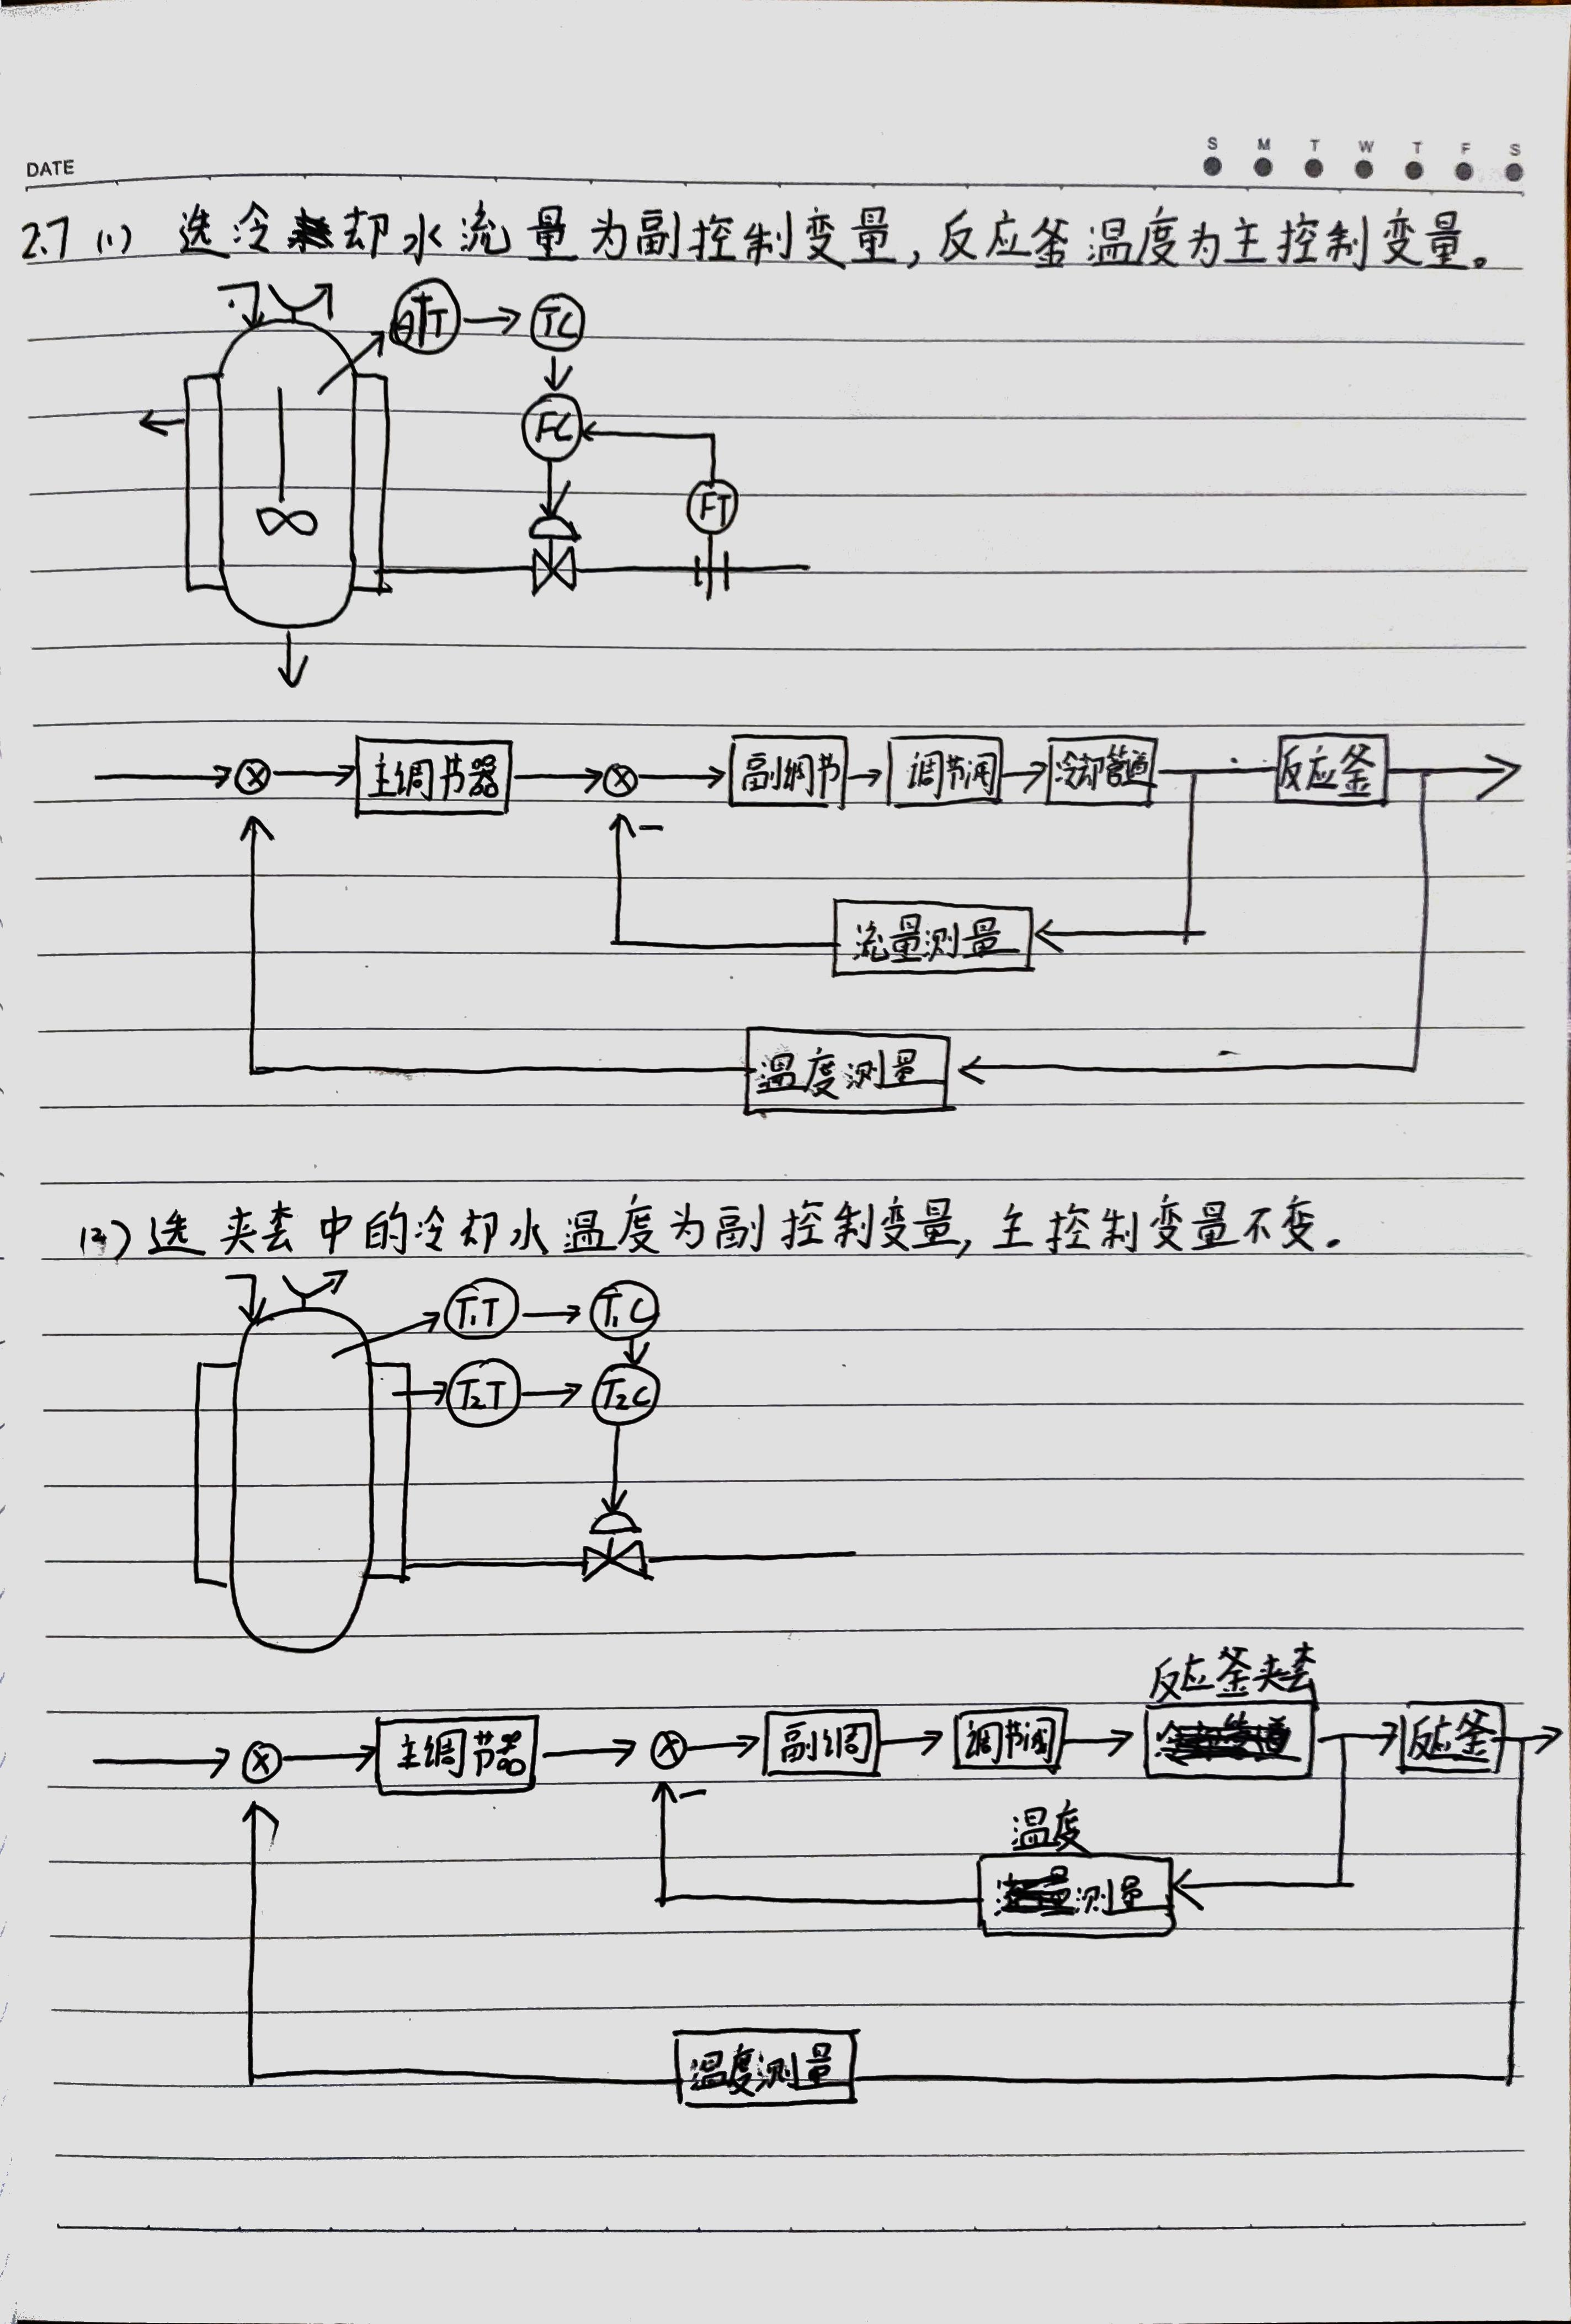 DATE
S M T W T F S
2.7 (1) 选冷却水流量为副控制变量，反应釜温度为主控制变量。
TT TC
FC
FT
主调节器 副调节 调节阀 冷却管道 反应釜
-
流量测量
温度测量
(2) 选夹套中的冷却水温度为副控制变量，主控制变量不变。
T₁T T₁C
T₂T T₂C
反应釜夹套
主调节器 副调 调节阀 反应釜
-
温度
测量
温度测量